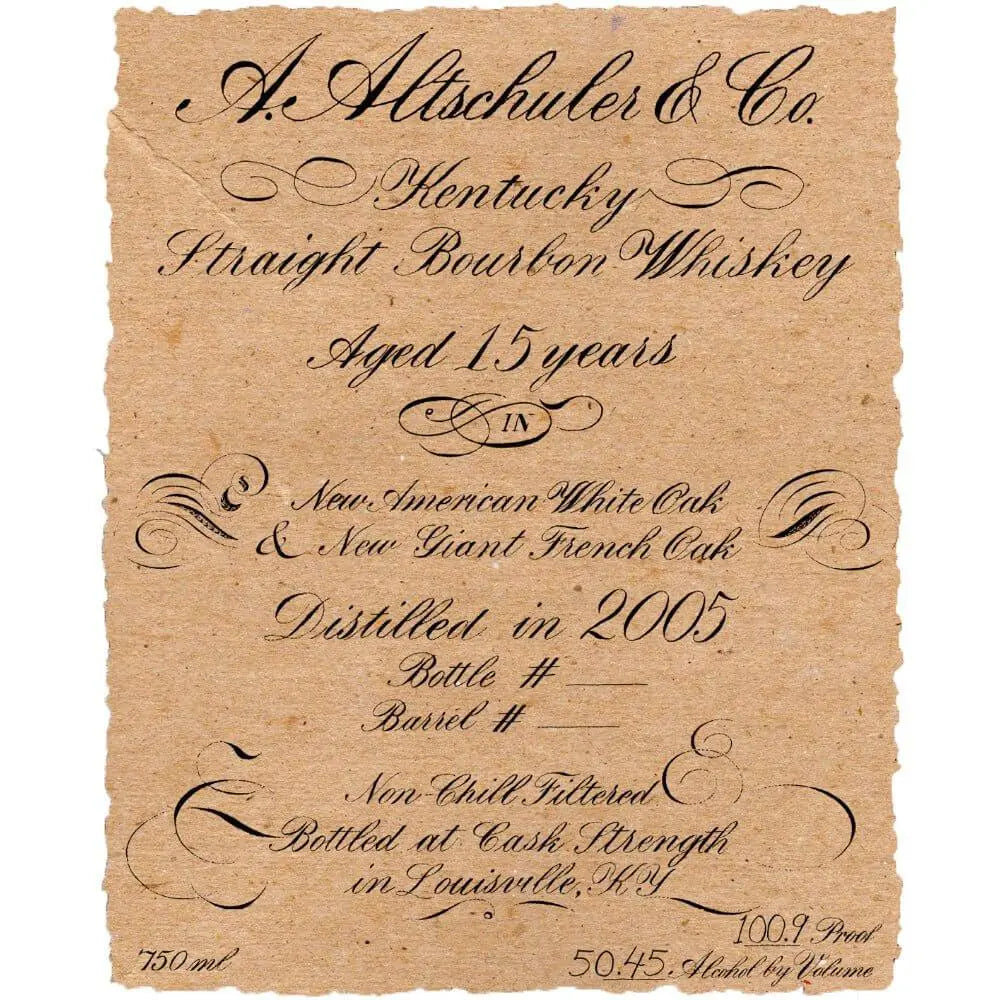 A. Altschuler & Co.
Kentucky
Straight Bourbon Whiskey
Aged 15 years
IN
New American White Oak
& New Giant French Oak
Distilled in 2005
Bottle # ___
Barrel # ___
Non-Chill Filtered
Bottled at Cask Strength
in Louisville, KY
100.9 Proof
750 ml
50.45 Alcohol by Volume